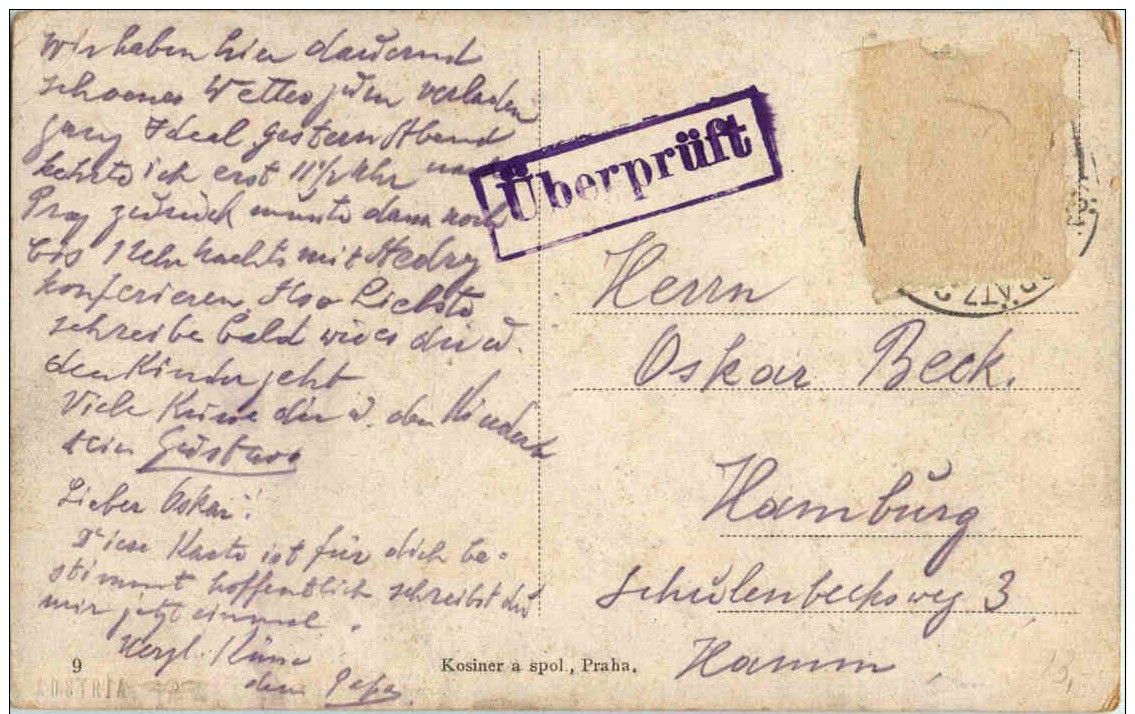 Wir haben hier dauernd
schoenes Wetter zum verladen
ganz Ideal gestern Abend
kehrte ich erst 11½ Uhr nach
Prag zurück musste dann noch
bis 1 Uhr nachts mit
konferieren Also Liebste
schreibe bald wie es dir u.
den Kinder geht
Viele Küsse dir u. den Kindern
dein Gustav
Lieber Oskar!
Diese Karte ist für dich be-
stimmt hoffentlich schreibst du
mir jetzt einmal.
Herzl. Küsse
dein Papa
Überprüft
Herrn
Oskar Beck.
Hamburg
Schulenbecksweg 3
Hamm
9
Kosiner a spol., Praha.
13,